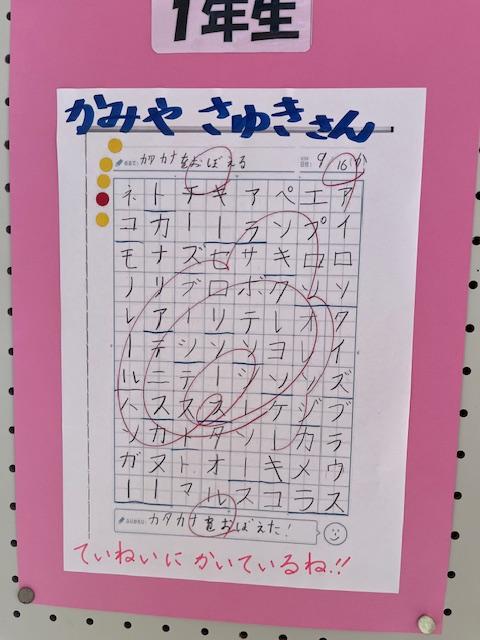 1年生
かみや さゆきさん
カタカナをおぼえる
9/16(か)
アイロンクイズブラウス
エプロンオレンジカメラ
ペンキクレヨンケーキコ
アラサボテンシーソース
キーセロリソースタオル
チーズブーツテストトマ
トカナリアテニスカヌー
ネコモノレールハンガー
カタカナをおぼえた!
ていねいに かいているね!!